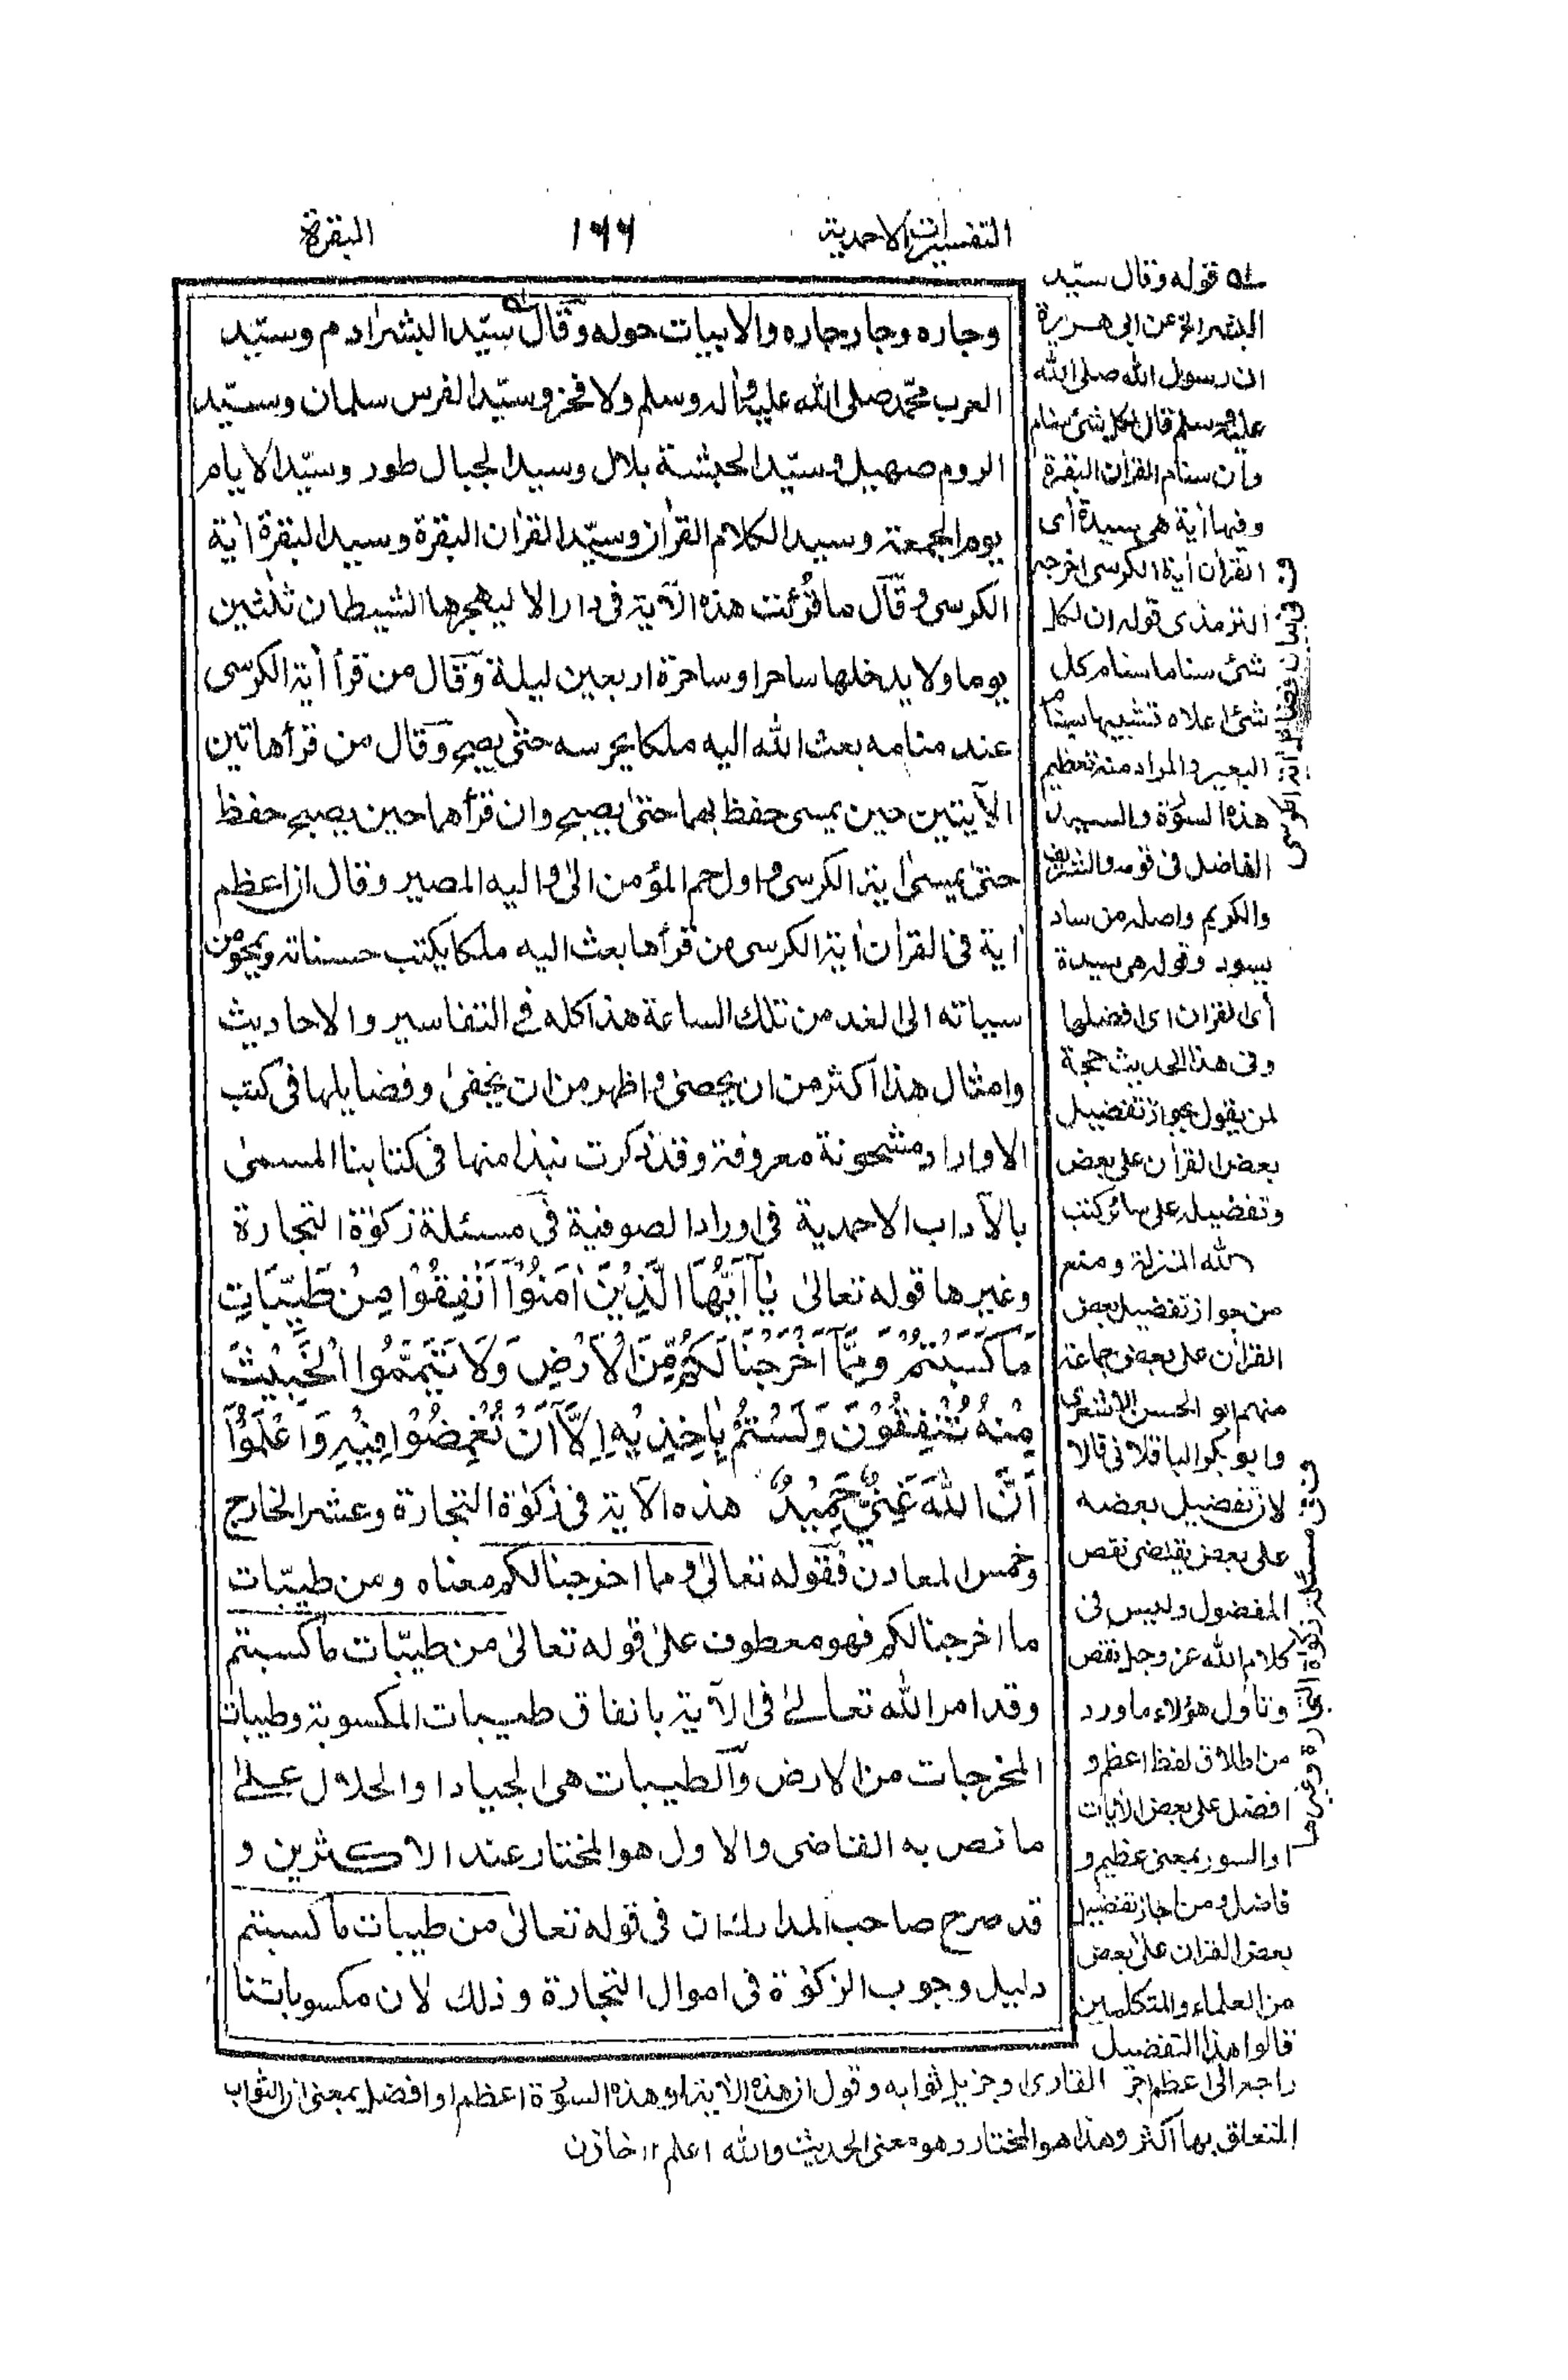 التفسيرات الاحمدية
١٦٦
البقرة
وجاره وجار جاره والابيات حوله وقال سيّد البشر ادم وسيّد
العرب محمّد صلى الله عليه واله وسلم ولا فخر وسيّد الفرس سلمان وسيّد
الروم صهيب وسيّد الحبشة بلال وسيد الجبال طور وسيّد الايام
يوم الجمعة وسيد الكلام القرآن وسيّد القرآن البقرة وسيد البقرة آية
الكرسى وقال ما قرئت هذه الآية فى دار الا ليهجرها الشيطان ثلثين
يوما ولا يدخلها ساحر او ساحرة اربعين ليلة وقال من قرأ آية الكرسى
عند منامه بعث الله اليه ملكا يحرسه حتى يصبح وقال من قرأ هاتين
الآيتين حين يمسى حفظ بهما حتى يصبح وان قرأهما حين يصبح حفظ
حتى يمسى آية الكرسى واول حم المؤمن الى واليه المصير وقال ان اعظم
آية فى القرآن آية الكرسى من قرأها بعث اليه ملكا يكتب حسناته ويمحو من
سياته الى الغد من تلك الساعة هذا كله فى التفاسير والاحاديث
وامثال هذا اكثر من ان يحصى واظهر من ان يخفى وفضايلها فى كتب
الاوراد مشحونة معروفة وقد ذكرت نبذا منها فى كتابنا المسمى
بالآداب الاحمدية فى اوراد الصوفية فى مسئلة زكوة التجارة
وغيرها قوله تعالى يٰٓاَيُّهَا الَّذِيْنَ اٰمَنُوْٓا اَنْفِقُوْا مِنْ طَيِّبَاتِ
مَا كَسَبْتُمْ وَمِمَّآ اَخْرَجْنَا لَكُمْ مِّنَ الْاَرْضِ وَلَا تَيَمَّمُوا الْخَبِيْثَ
مِنْهُ تُنْفِقُوْنَ وَلَسْتُمْ بِاٰخِذِيْهِ اِلَّآ اَنْ تُغْمِضُوْا فِيْهِ وَاعْلَمُوْٓا
اَنَّ اللّٰهَ غَنِيٌّ حَمِيْدٌ هذه الآية فى زكوة التجارة وعشر الخارج
وخمس المعادن فقوله تعالى ومما اخرجنا لكم معناه ومن طيّبات
ما اخرجنا لكم فهو معطوف على قوله تعالى من طيّبات ما كسبتم
وقد امر الله تعالى فى الآية بانفاق طيبات المكسوبة وطيبات
المخرجات من الارض والطيبات هى الجياد او الحلال على
ما نص به القاضى والاول هو المختار عند الاكثرين و
قد صرح صاحب المدارك ان فى قوله تعالى من طيبات ما كسبتم
دليل وجوب الزكوة فى اموال التجارة وذلك لان مكسوباتنا
له قوله وقال سيّد
البشر الخ عن ابى هريرة
ان رسول الله صلى الله
عليه وسلم قال لكل شئ سنام
وان سنام القرآن البقرة
وفيها آية هى سيدة آى
القرآن آية الكرسى اخرجه
الترمذى قوله ان لكل
شئ سناما سنام كل
شئ اعلاه تشبيها بسنام
البعير والمراد منه تعظيم
هذه السورة والسيد
الفاضل فى قومه والشريف
والكريم واصله من ساد
يسود وقوله هى سيدة
آى القرآن اى افضلها
وفى هذا الحديث حجة
لمن يقول بجواز تفضيل
بعض القرآن على بعض
وتفضيله على سائر كتب
الله المنزلة ومنع
من جواز تفضيل بعض
القرآن على بعض جماعة
منهم ابو الحسن الاشعرى
وابو بكر الباقلانى قالا
لان تفضيل بعضه
على بعض يقتضى نقص
المفضول وليس فى
كلام الله عز وجل نقص
وتاول هؤلاء ما ورد
من اطلاق لفظ اعظم و
افضل على بعض الآيات
او السور بمعنى عظيم و
فاضل ومن اجاز تفضيل
بعض القرآن على بعض
من العلماء والمتكلمين
قالوا هذا التفضيل
راجع الى اعظم اجر القارى وجزيل ثوابه وقول ان هذه الآية او هذه السورة اعظم او افضل بمعنى ان الثواب
المتعلق بها اكثر وهذا هو المختار وهو معنى الحديث والله اعلم ١٢ خازن
فى بيان فضائل آية الكرسى
فى مسئلة زكوة التجارة وغيرها